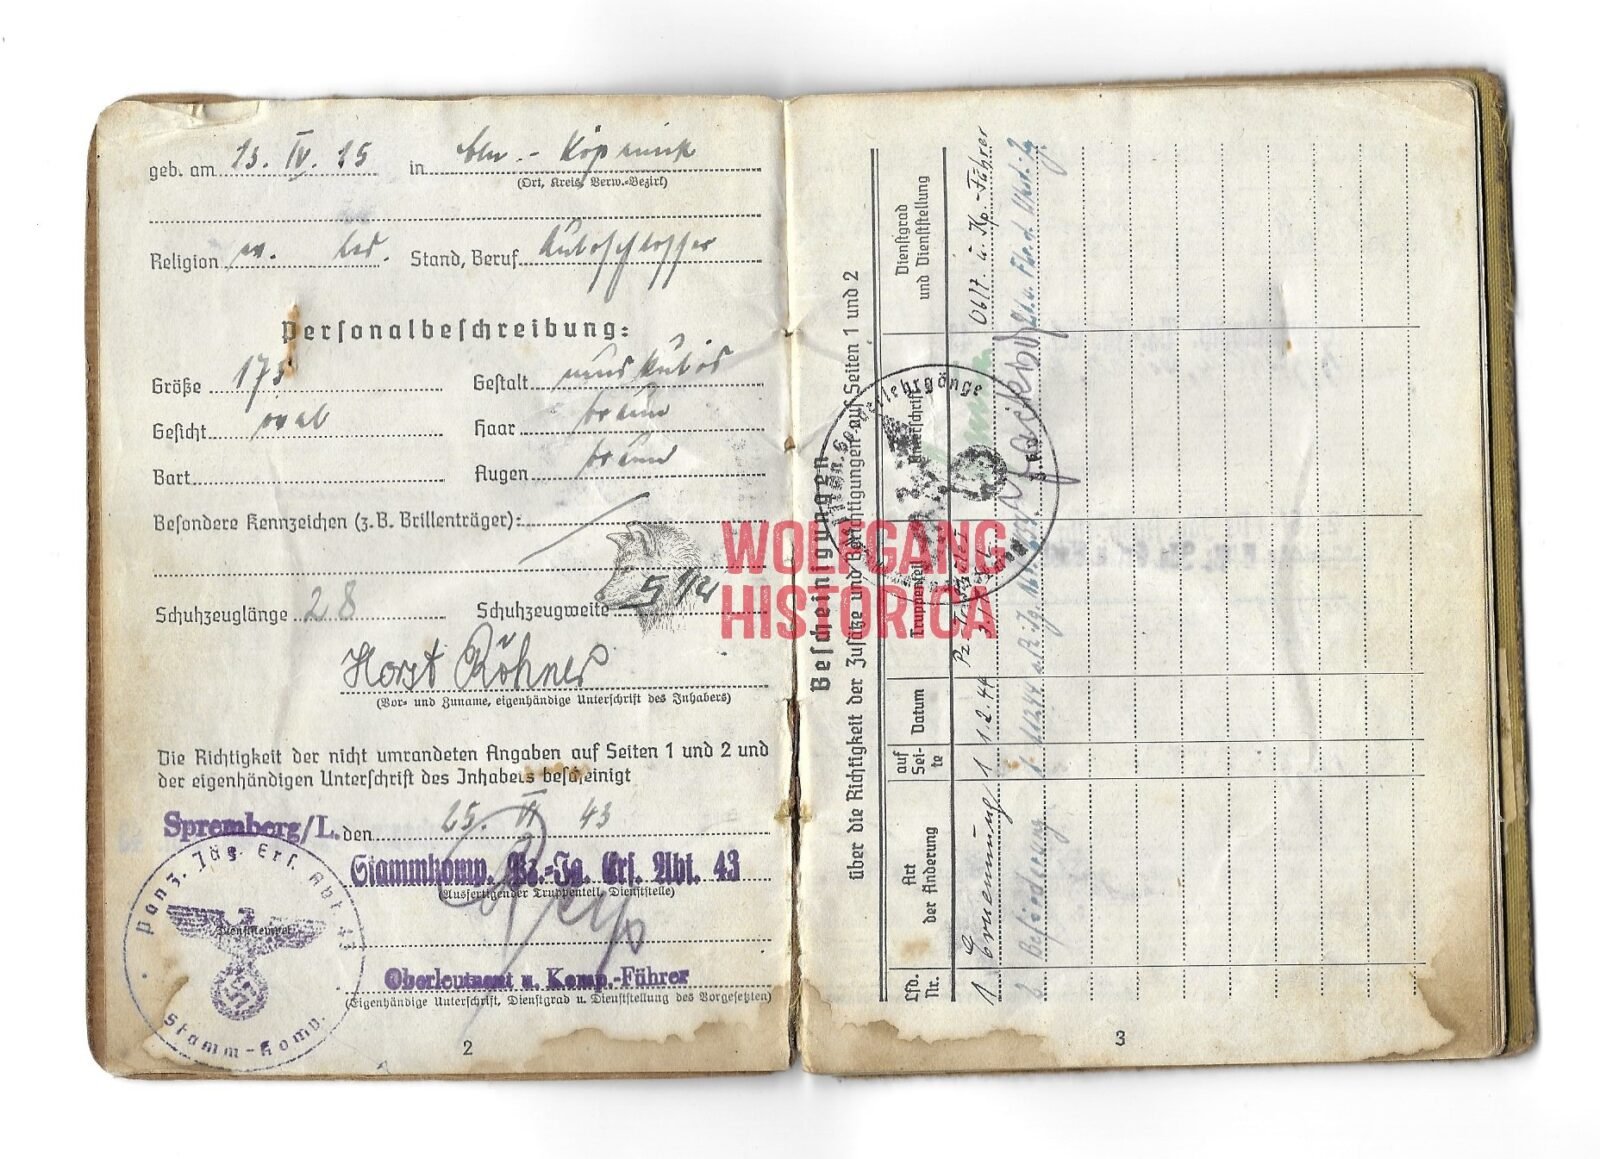 geb. am 13. IV. 15 in Bln.-Köpenick
(Ort, Kreis, Verw.-Bezirk)
Religion ev. Stand, Beruf Autoschlosser
Personalbeschreibung:
Größe 173 Gestalt muskulös
Gesicht oval Haar braun
Bart Augen braun
Besondere Kennzeichen (z.B. Brillenträger):
Schuhzeuglänge 28 Schuhzeugweite 5 1/2
Horst Röhner
(Vor- und Zuname, eigenhändige Unterschrift des Inhabers)
Die Richtigkeit der nicht umrandeten Angaben auf Seiten 1 und 2 und
der eigenhändigen Unterschrift des Inhabers bescheinigt
Spremberg/L. den 25. 43
Stammkomp. Pz.-Jg. Ers. Abt. 43
(Ausfertigender Truppenteil, Dienststelle)
Oberleutnant u. Komp.-Führer
(Eigenhändige Unterschrift, Dienstgrad u. Dienststellung des Vorgesetzten)
Panz. Jäg. Ers. Abt. 43
Dienststempel
Stamm-Komp.
2
WOLFGANG
HISTORICA
Bescheinigungen
über die Richtigkeit der Zusätze und Berichtigungen auf Seiten 1 und 2
Lfd. Nr. Art der Änderung auf Seite Datum Truppenteil Unterschrift Dienstgrad und Dienststellung
1 Ernennung 1 1.2.44 Oblt. u. Kp.-Führer
2 Beförderung 1 1.12.44
3